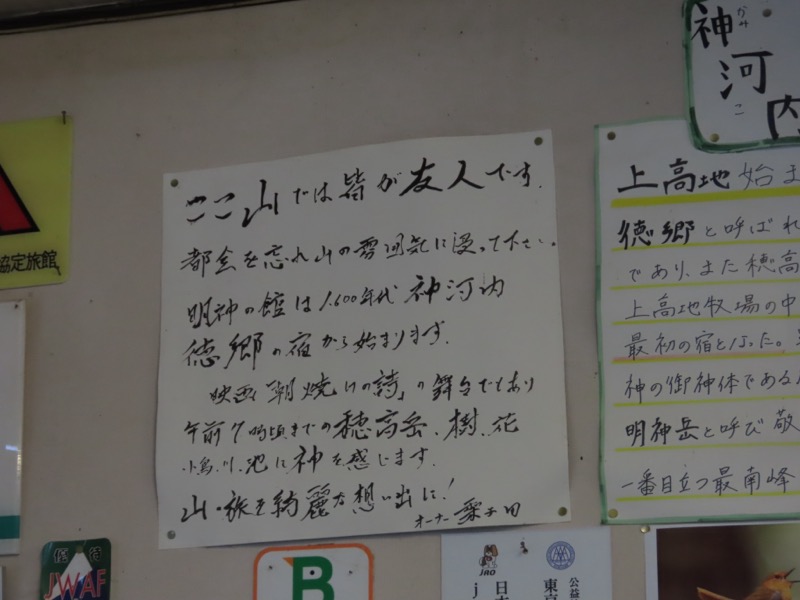 ここ山では皆が友人です.
都会を忘れ山の雰囲気に浸って下さい。
明神の館は1.600年代 神河内
徳郷の宿から始まります.
映画「朝焼けの詩」の舞台でもあり
午前7時頃までの穂高岳、樹、花
小鳥、川、池に神を感じます.
山・旅を綺麗な想い出に!
オーナー 梨子田
神河内
かみ
こ
上高地 始ま
徳郷と呼ばれ
であり、また穂高
上高地牧場の中
最初の宿となった。
神の御神体である
明神岳と呼び 敬
一番目立つ最南峰
協定旅館
優待
JWAF
B
JAO
日本
東京
公益